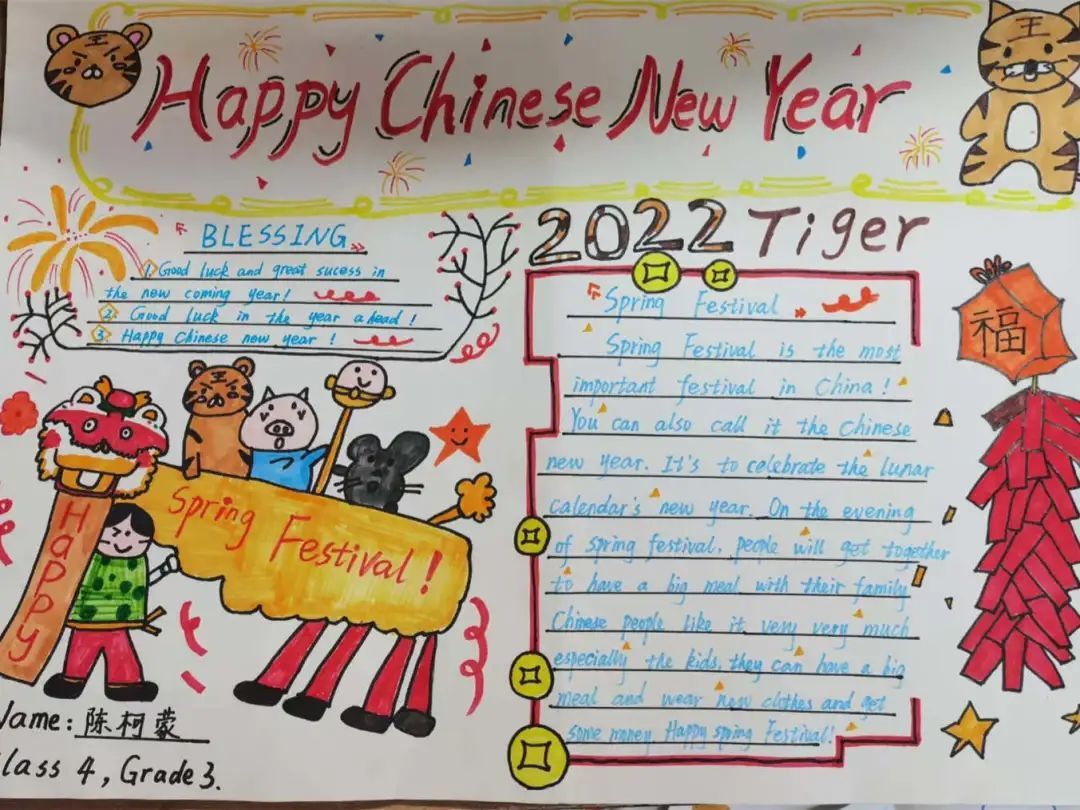 王
王
Happy Chinese New Year
BLESSING
1 Good luck and great sucess in
the new coming year!
2 Good luck in the year ahead!
3 Happy Chinese new year!
2022 Tiger
Spring Festival
Spring Festival is the most
important festival in China!
You can also call it the Chinese
new year. It's to celebrate the lunar
calendar's new year. On the evening
of spring festival, people will get together
to have a big meal with their family
Chinese people like it very very much
especially the kids, they can have a big
meal and wear new clothes and get
some money. Happy spring Festival!
福
Happy
Spring Festival!
Name: 陈柯蒙
Class 4, Grade 3.